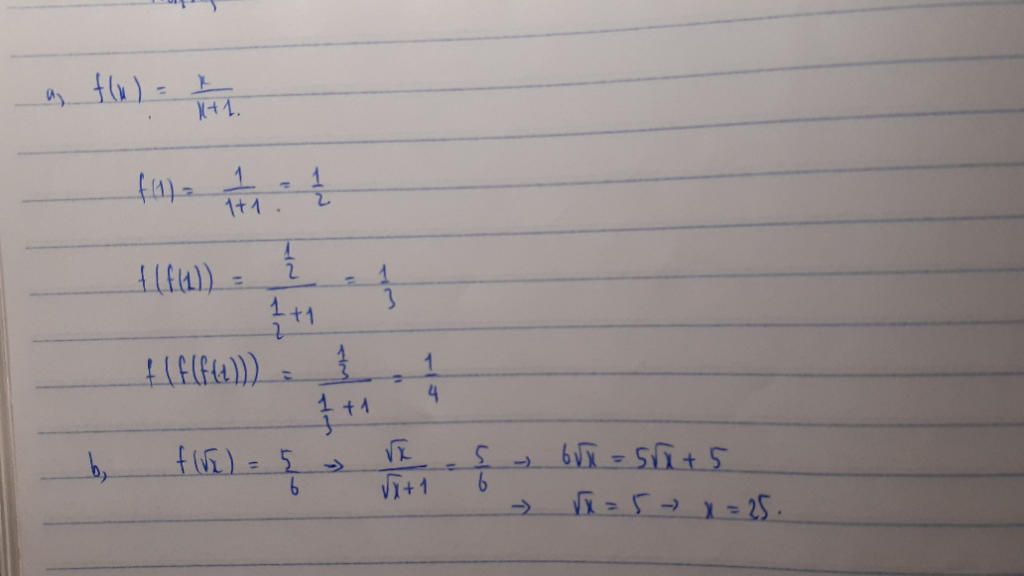 a, f(x) = x/(x+1).
f(1) = 1/(1+1) = 1/2
f(f(1)) = (1/2)/(1/2 + 1) = 1/3
f(f(f(1))) = (1/3)/(1/3 + 1) = 1/4
b, f(√x) = 5/6 → √x/(√x+1) = 5/6 → 6√x = 5√x + 5
→ √x = 5 → x = 25.